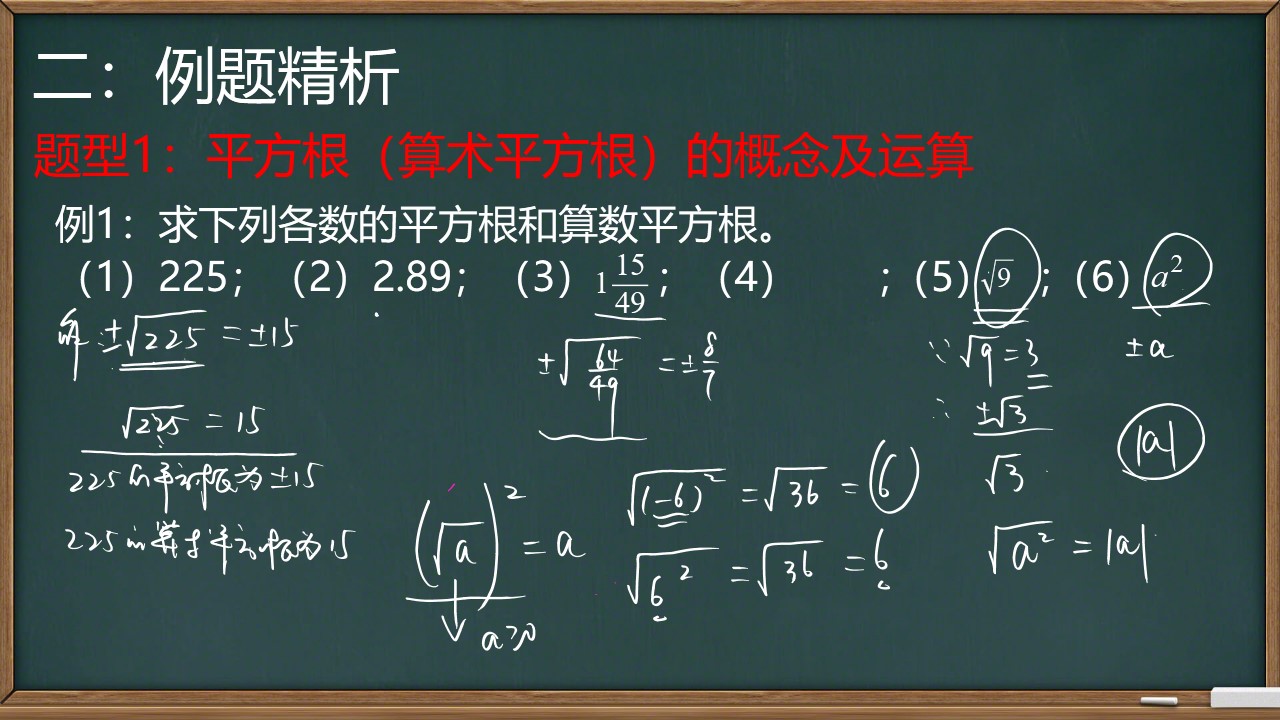 二：例题精析
题型1：平方根（算术平方根）的概念及运算
例1：求下列各数的平方根和算数平方根。
（1）225；（2）2.89；（3）1 15/49；（4） ；（5）√9；（6）a²
解：±√225 = ±15
√225 = 15
225的平方根为±15
225的算术平方根为15
±√(64/49) = ±8/7
(√a)² = a
a≥0
√(-6)² = √36 = 6
√6² = √36 = 6
∵ √9 = 3
∴ ±√3
√3
±a
|a|
√a² = |a|